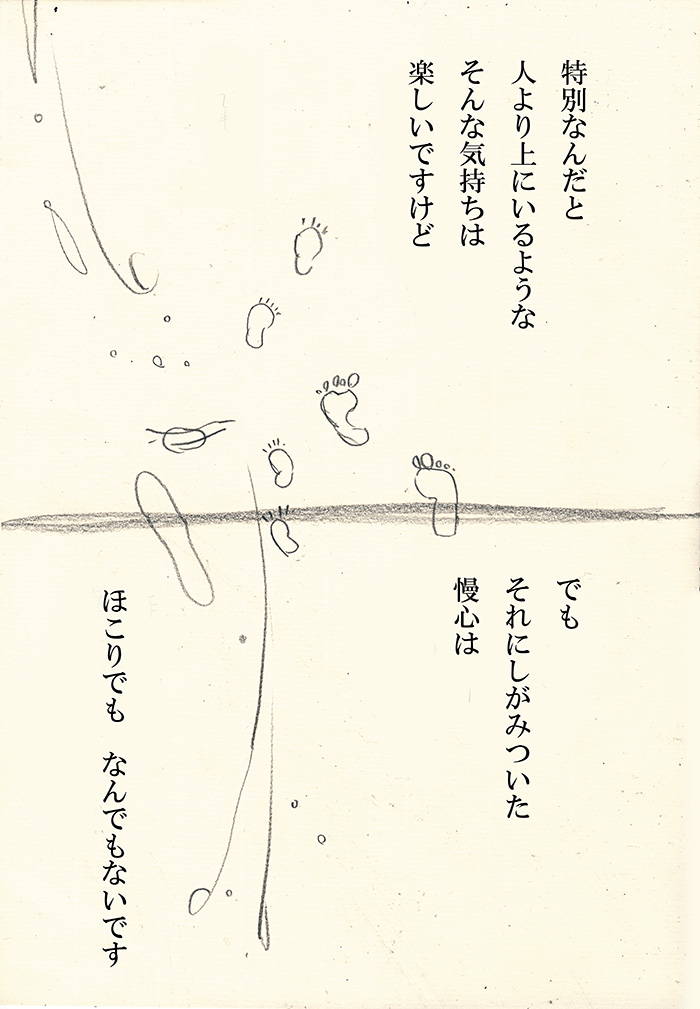 特別なんだと
人より上にいるような
そんな気持ちは
楽しいですけど
でも
それにしがみついた
慢心は
ほこりでも　なんでもないです